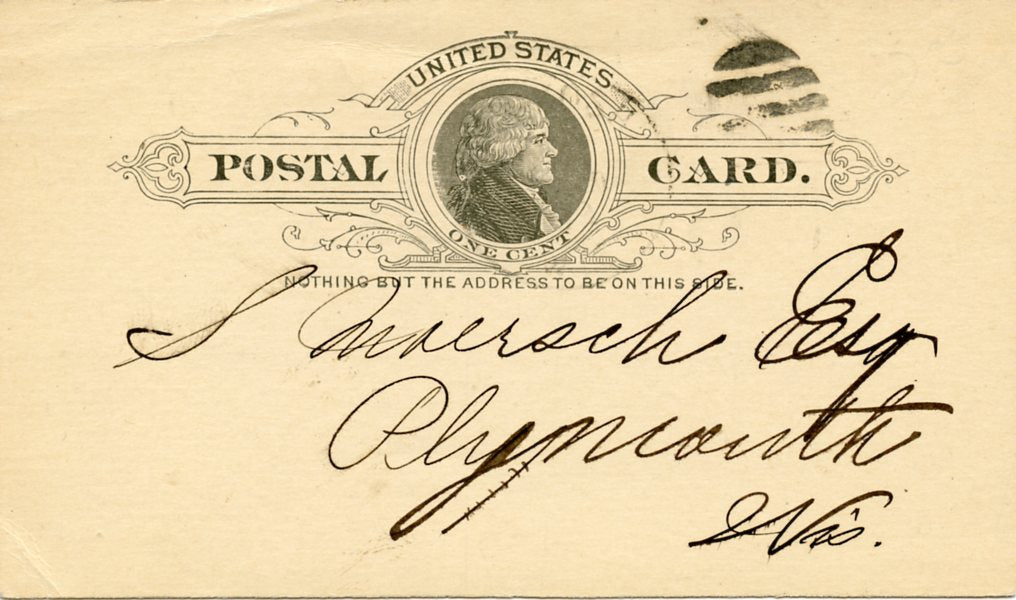 UNITED STATES
POSTAL CARD.
ONE CENT
NOTHING BUT THE ADDRESS TO BE ON THIS SIDE.
S Moersch Esq
Plymouth
Wis.